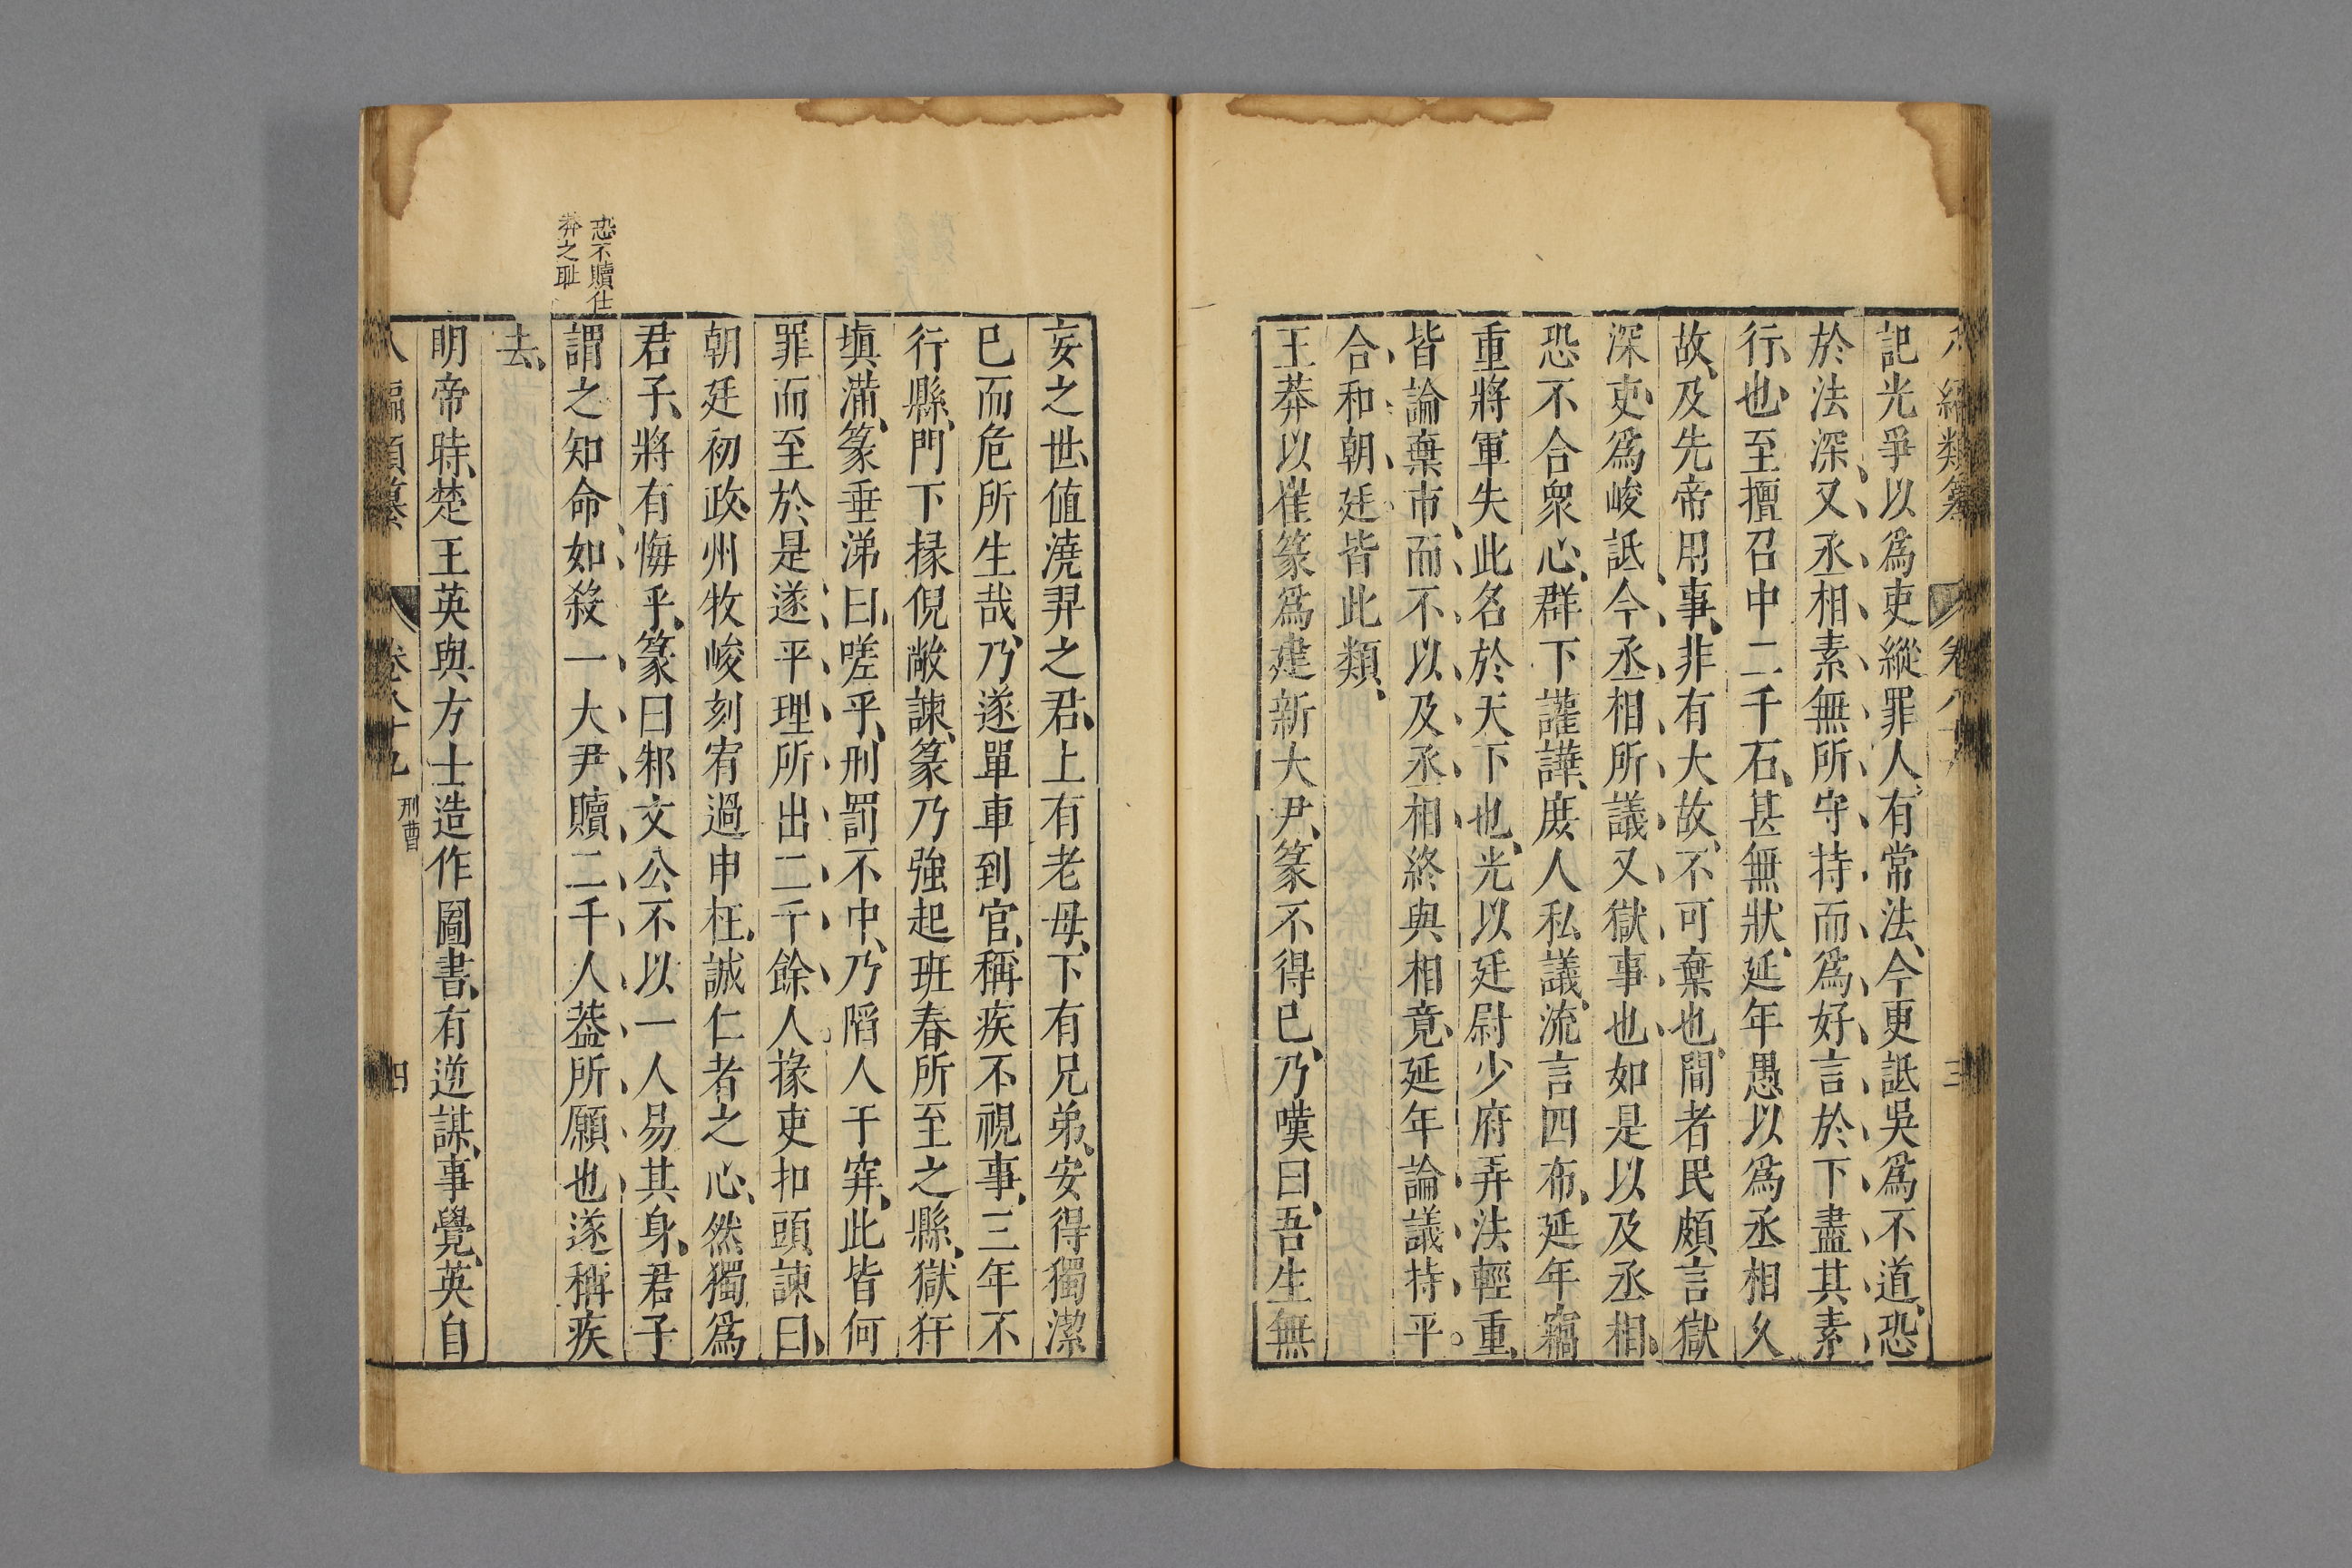 記光爭以爲吏縱罪人、有常法、今更詆吳爲不道、恐
於法深、又丞相素無所守持而爲好言於下盡其素
行也、至擅召中二千石、甚無狀、延年愚以爲丞相久
故、及先帝用事、非有大故、不可棄也、間者民頗言獄
深吏爲峻詆今丞相所議又獄事也如是以及丞相、
恐不合衆心、群下讙譁、庶人私議、流言四布、延年竊
重將軍失此名於天下也、光以廷尉少府弄法輕重、
皆論棄市、而不以及丞相終與相竟、延年論議持平。
合和朝廷皆此類、
王莽以崔篆爲建新大尹、篆不得已、乃嘆曰、吾生無
妄之世、值澆羿之君、上有老母、下有兄弟、安得獨潔
已而危所生哉、乃遂單車到官、稱疾不視事、三年不
行縣、門下掾倪敞諫、篆乃強起班春所至之縣、獄犴
塡滿、篆垂涕曰、嗟乎、刑罰不中、乃陷人于穽、此皆何
罪而至於是遂平理所出二千餘人掾吏扣頭諫曰、
朝廷初政、州牧峻刻宥過申枉、誠仁者之心、然獨爲
君子、將有悔乎、篆曰邾文公不以一人易其身、君子
謂之知命如殺一大尹贖二千人葢所願也遂稱疾
去、
恐不贖仕
莽之耻
明帝時、楚王英與方士造作圖書、有逆謀、事覺、英自
八編類纂 卷八十九 刑曹 四